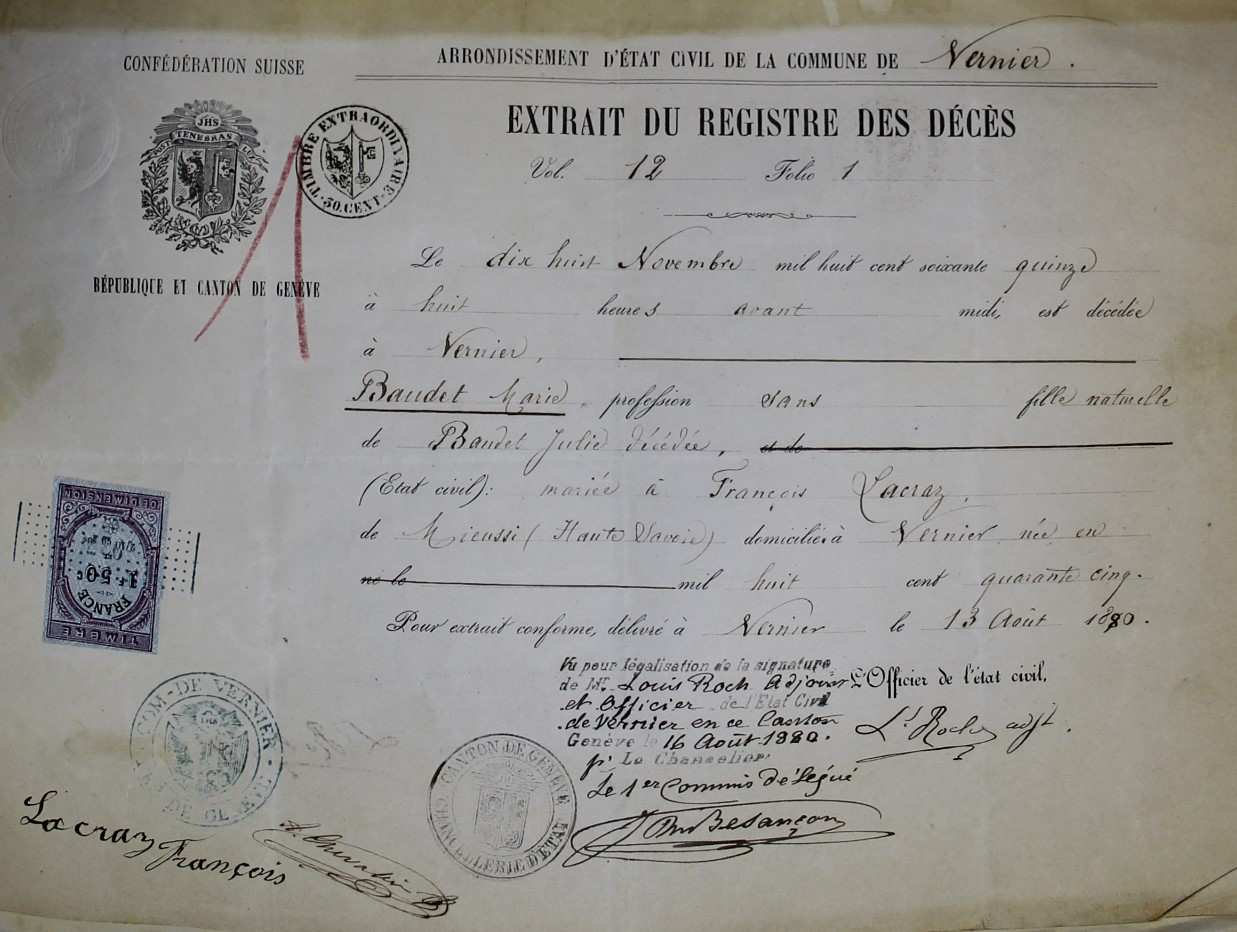 CONFÉDÉRATION SUISSE
ARRONDISSEMENT D'ÉTAT CIVIL DE LA COMMUNE DE Vernier.
EXTRAIT DU REGISTRE DES DÉCÈS
Vol. 12 Folio 1
JHS
POST TENEBRAS LUX
TIMBRE EXTRAORDINAIRE
50. CENT.
RÉPUBLIQUE ET CANTON DE GENÈVE
Le dix huit Novembre mil huit cent soixante quinze
à huit heures avant midi, est décédée
à Vernier,
Baudet Marie, profession sans fille naturelle
de Baudet Julie décédée, et de
(Etat civil): mariée à François Lacraz,
de Mieussi (Haute Savoie) domiciliée à Vernier née en
né le mil huit cent quarante cinq.
Pour extrait conforme, délivré à Vernier le 13 Août 1880.
DE DIMENSION
1F 50c
FRANCE
TIMBRE
Vu pour légalisation de la signature
de Mr. Louis Roch Adjoint
et Officier de l'Etat Civil
de Vernier en ce Canton
Genève le 16 Août 1880.
pr Le Chancelier
Le 1er Commis délégué
L'Officier de l'état civil,
Ls Roch adjt.
COM. DE VERNIER
CANTON DE GENÈVE
CHANCELLERIE D'ÉTAT
Besançon
Lacraz
François